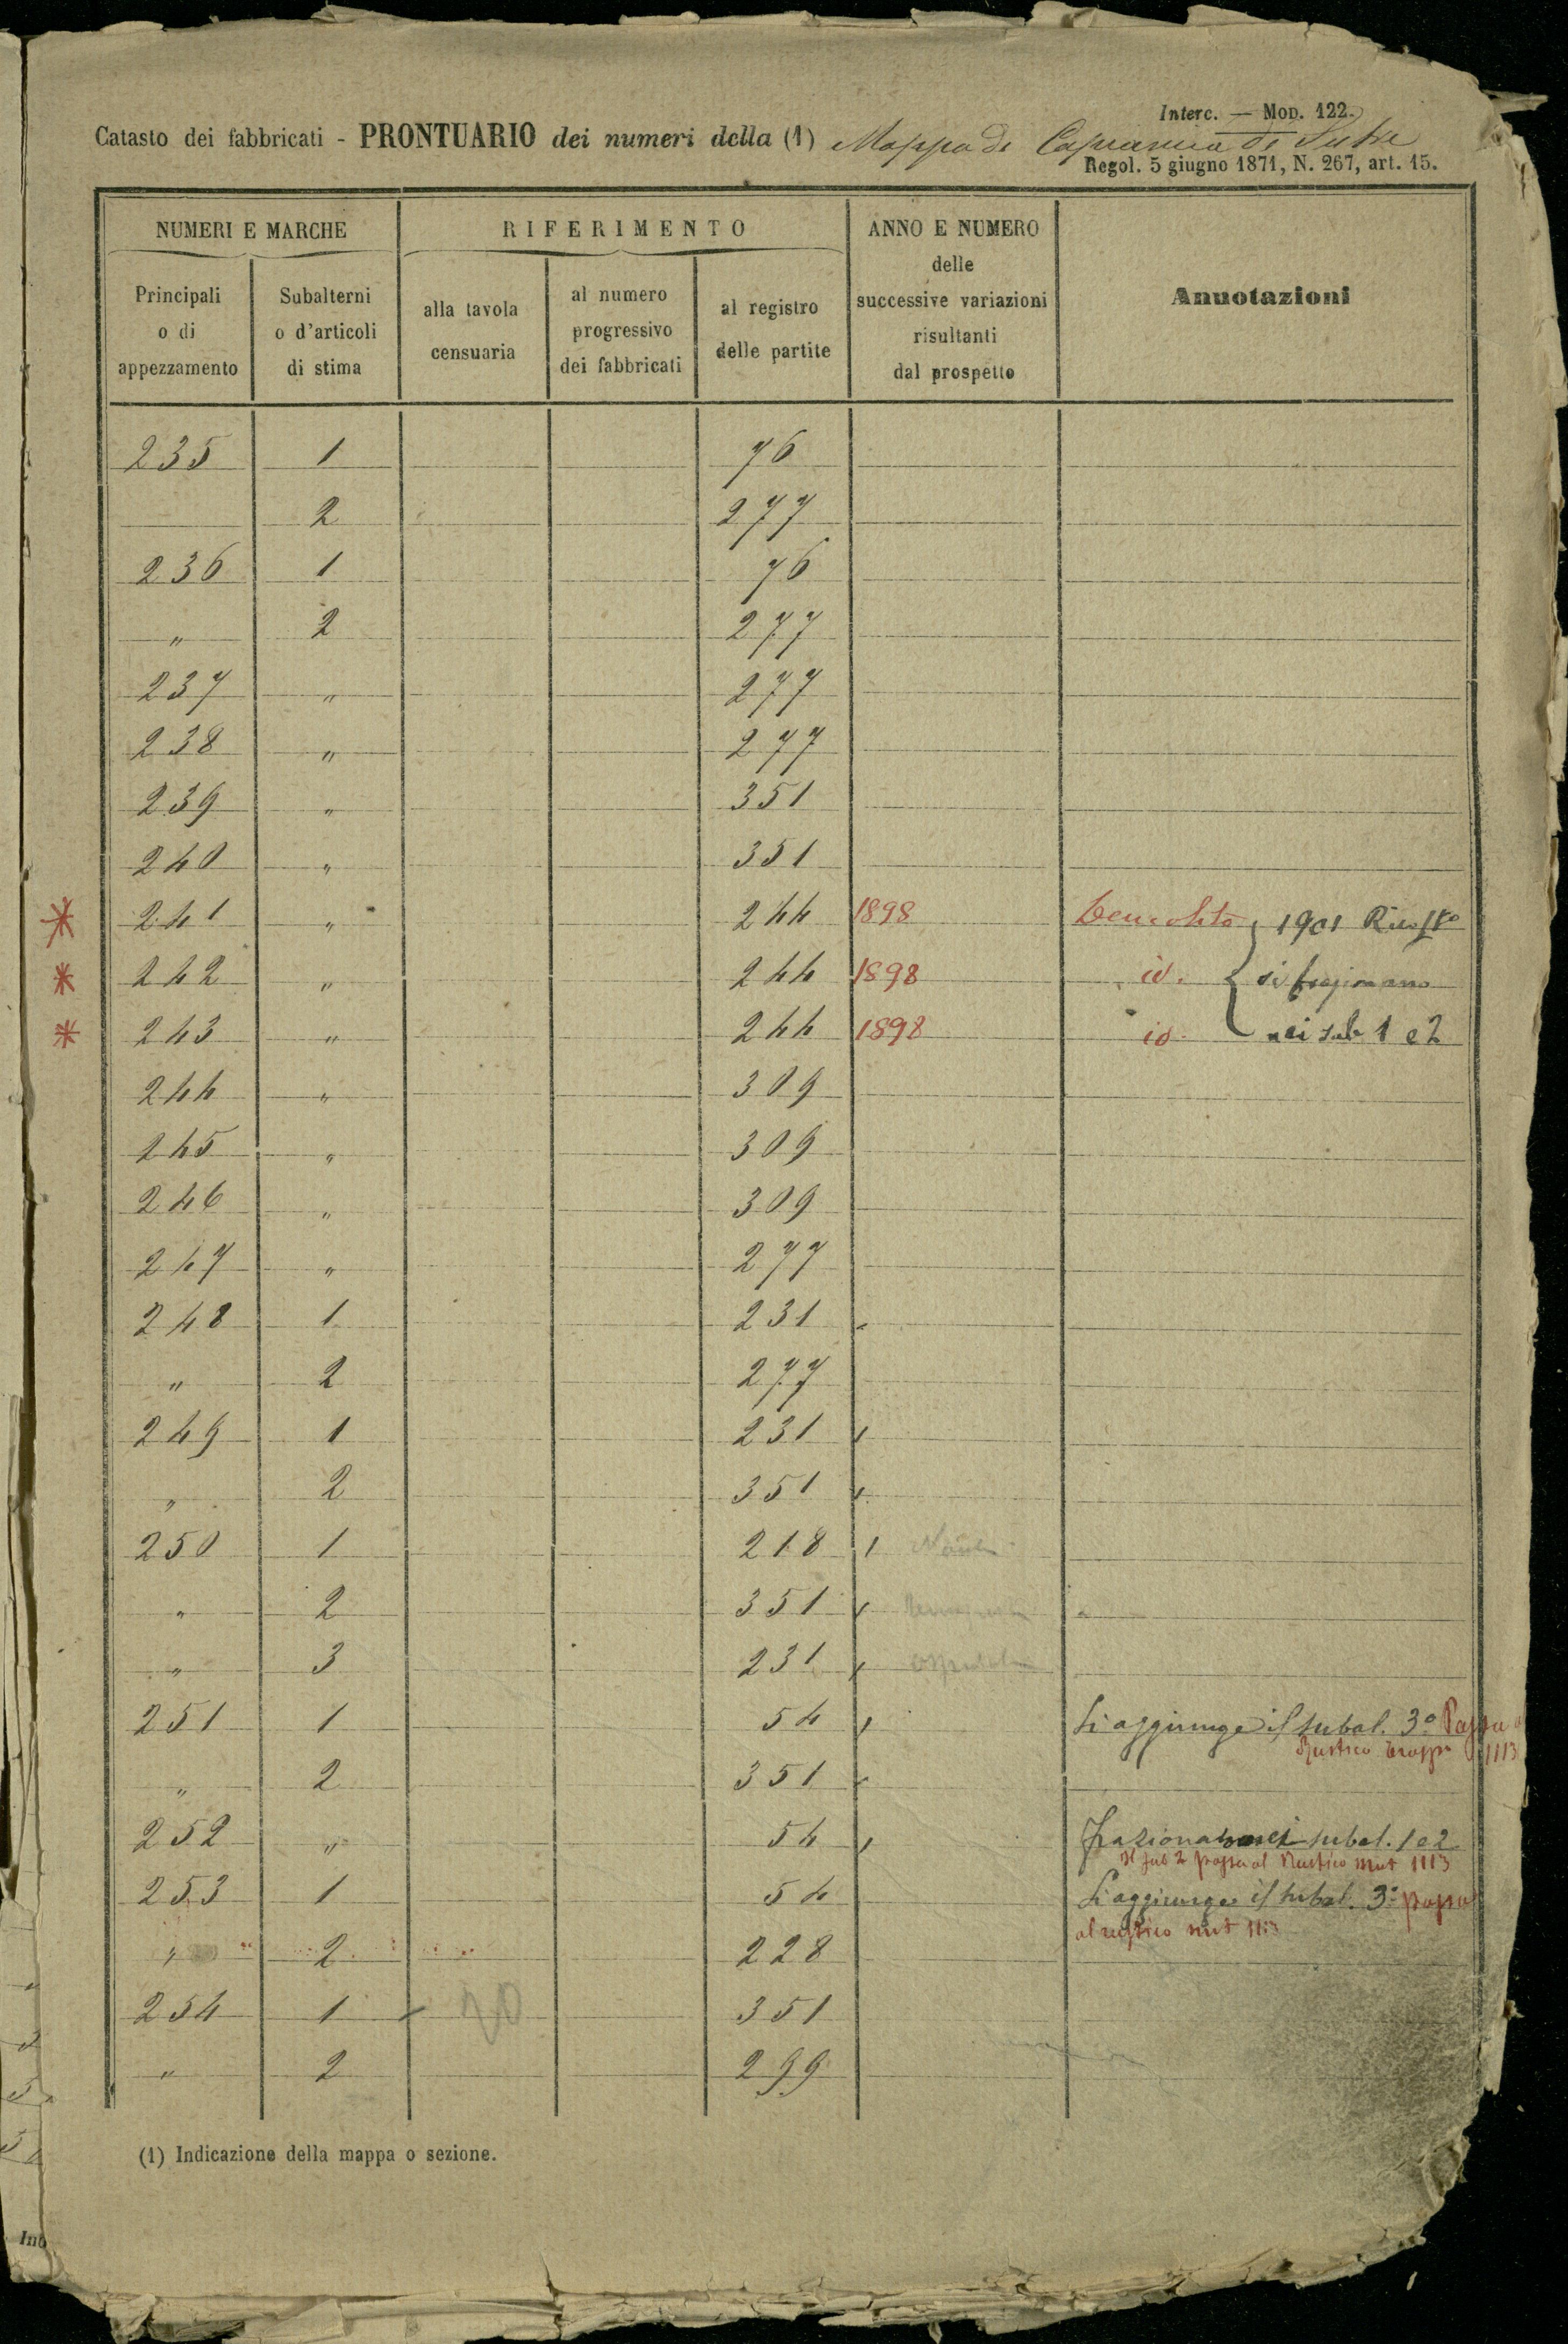 Interc. — Mod. 122.
Catasto dei fabbricati - PRONTUARIO dei numeri della (1) Mappa di Capranica di Sutri
Regol. 5 giugno 1871, N. 267, art. 15.
NUMERI E MARCHE
RIFERIMENTO
ANNO E NUMERO
delle
successive variazioni
risultanti
dal prospetto
Annotazioni
Principali
o di
appezzamento
Subalterni
o d'articoli
di stima
alla tavola
censuaria
al numero
progressivo
dei fabbricati
al registro
delle partite
235 1 76
2 277
236 1 76
" 2 277
237 " 277
238 " 277
239 " 351
240 " 351
* 241 " 244 1898 1901
* 242 " 244 1898 id. si frazionano
* 243 " 244 1898 id. nei sub 1 e 2
244 " 309
245 " 309
246 " 309
247 " 277
248 1 231
" 2 277
249 1 231
" 2 351
250 1 218
" 2 351
" 3 231
251 1 54 Si aggiunge il subal. 3° Passa
Rustico 1113
" 2 351
252 " 54 subal. 1 e 2
Il sub 2 passa al Rustico mut 1113
253 1 54 Si aggiunge il subal. 3° passa
al rustico mut 1113
" 2 228
254 1 351
" 2 299
(1) Indicazione della mappa o sezione.
Int